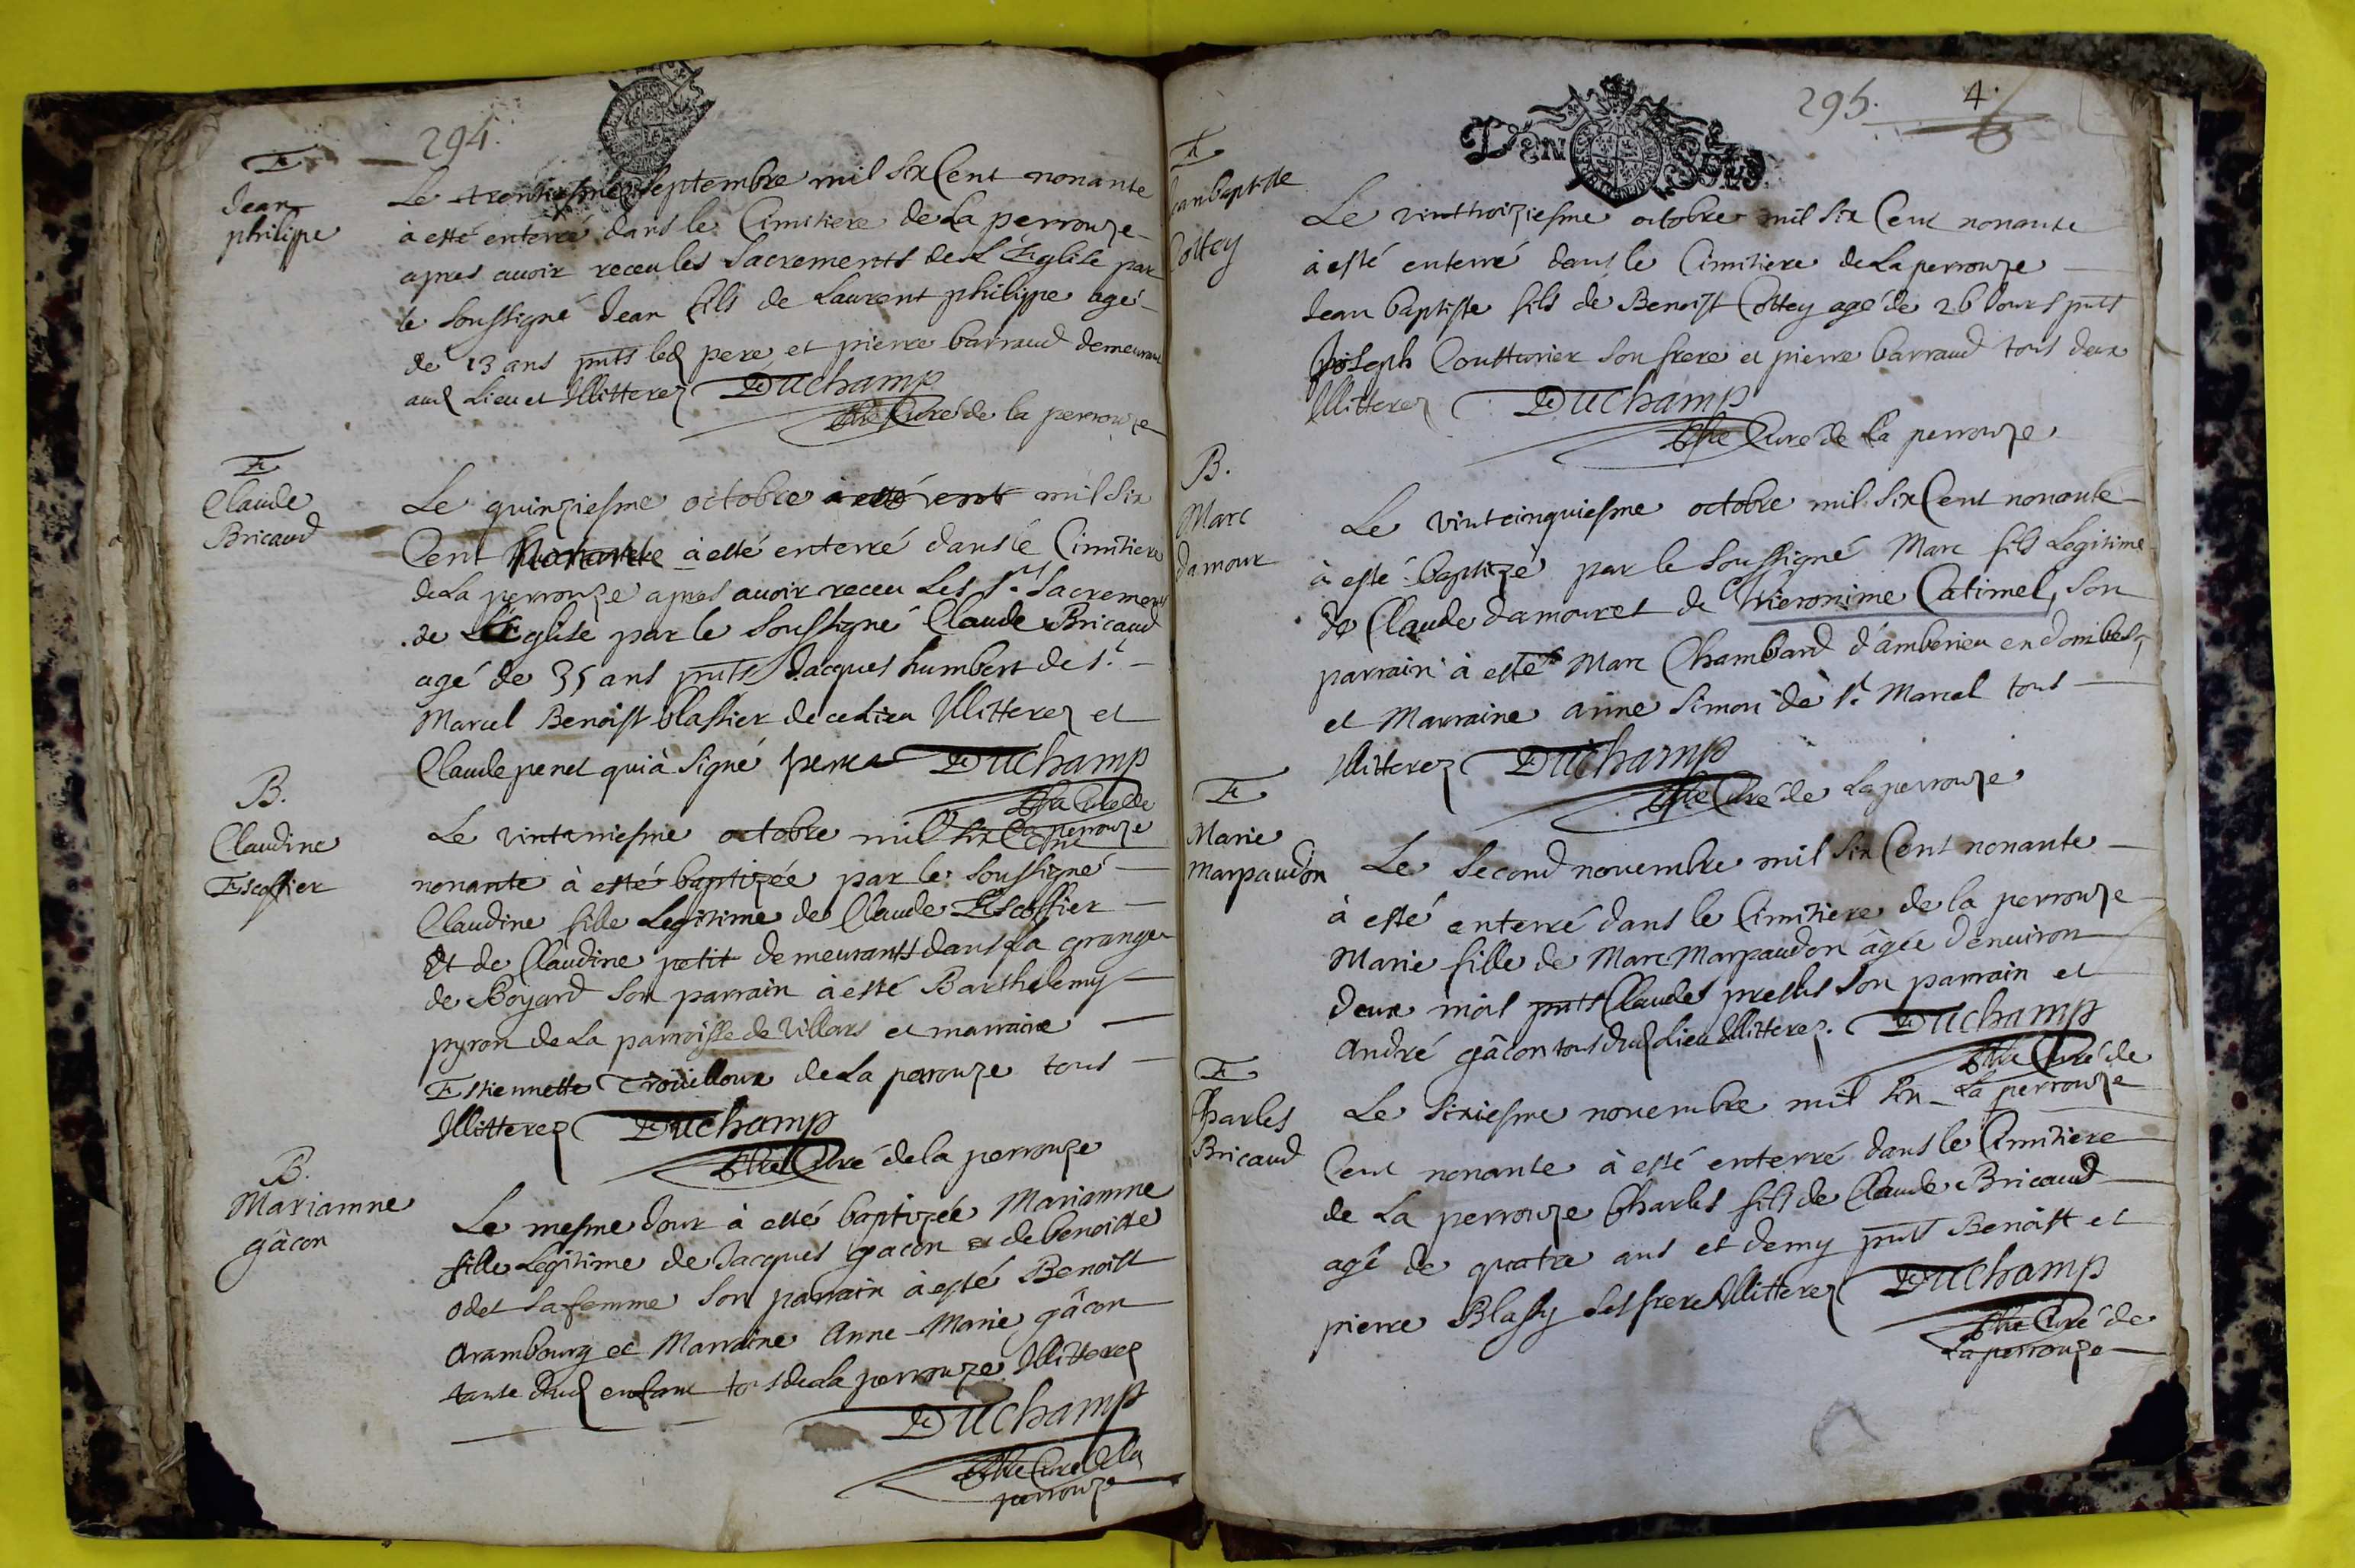 294.
E
Jean
philippe
Le trentiesme Septembre mil six Cent nonante
à esté enterré dans le Cimitiere de La perrouze
apres auoir receu les Sacrements de L'Église par
le soussigné Jean fils de Laurent philippe agé
de 13 ans pnts led pere et pierre barraud demeurant
aud Lieu et Illitterez Duchamp
Pbre Curé de la perrouze
E
Claude
Bricaud
Le quinziesme octobre mil six
Cent nonante à esté enterré dans le Cimitiere
de La perrouze apres auoir receu Les Sts Sacrements
de L'Eglise par le soussigné Claude Bricaud
agé de 35 ans pnts Jacques humbert de St
Marcel Benoist blassier de ce Lieu Illitterez et
Claude penet qui à signé penet Duchamp
Pbre Curé de
la perrouze
B.
Claudine
Escoffier
Le vintuniesme octobre mil six Cent
nonante à esté baptizée par le soussigné
Claudine fille Legitime de Claude Escoffier
Et de Claudine petit demeurants dans La grange
de Boyard son parrain à esté Barthelemy
pyron de La parroisse de Villars et marraine
Estiennette Trouilloux de La perrouze tous
Illitterez Duchamp
Pbre Curé de la perrouze
B.
Mariamne
gâcon
Le mesme Jour à esté baptizée Mariamne
fille Legitime de Jacques gacon et de benoitte
odet sa femme son parrain à esté Benoist
Arambourg et Marraine Anne-Marie gâcon
tante dud enfant tous de La perrouze Illitterez
Duchamp
Pbre Curé de la
perrouze
295.
4.
DEUX SOLS
E
Jean baptiste
Cottey
Le vinttroiziesme octobre mil six Cent nonante
à esté enterré dans le Cimitiere de La perrouze
Jean baptiste fils de Benoist Cottey agé de 26 Jours pnts
Joseph Coutturier son frere et pierre barraud tous deux
Illitterez Duchamp
Pbre Curé de La perrouze
B.
Marc
Damour
Le vintcinquiesme octobre mil six Cent nonante
à esté baptizé par le soussigné Marc fils Legitime
de Claude damour et de Hieronime Catimel, son
parrain à esté Marc Chambard d'amberieu en dombes,
et Marraine anne Simon de St Marcel tous
Illitterez Duchamp
Pbre Curé de La perrouze
E
Marie
Marpaudon
Le second nouembre mil six Cent nonante
à esté enterré dans le Cimitiere de la perrouze
Marie fille de Marc Marpaudon âgée d'enuiron
deux mois pnts Claude son parrain et
André gâcon tous dud Lieu Illitterez. Duchamp
Pbre Curé de
La perrouze
E
Charles
Bricaud
Le sixiesme nouembre mil six
Cent nonante à esté enterré dans le Cimitiere
de La perrouze Charles fils de Claude Bricaud
agé de quatre ans et demy pnts Benoist et
pierre Blassy ses freres Illitterez Duchamp
Pbre Curé de
La perrouze